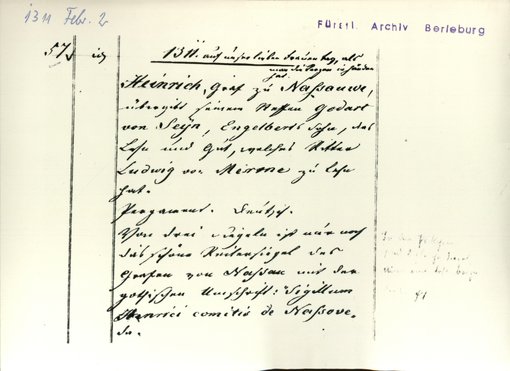 1311 Febr. 2
Fürstl. Archiv Berleburg
57
1311. auf unser lieben Frauen tag, als
man die kerzen in handen
hat.
Heinrich, Graf zu Naßauwe,
übergibt seinem Neffen Godart
von Seyn, Engelberts Sohn, das
Lehn und Gut, welches Ritter
Ludwig von Mirone zu Lehn
hat.
Pergament. Deutsch.
Von drei Siegeln ist nur noch
das schöne Reitersiegel des
Grafen von Naßau mit der
gothischen Umschrift: Sigillum
Henrici comitis de Naßove.
da.